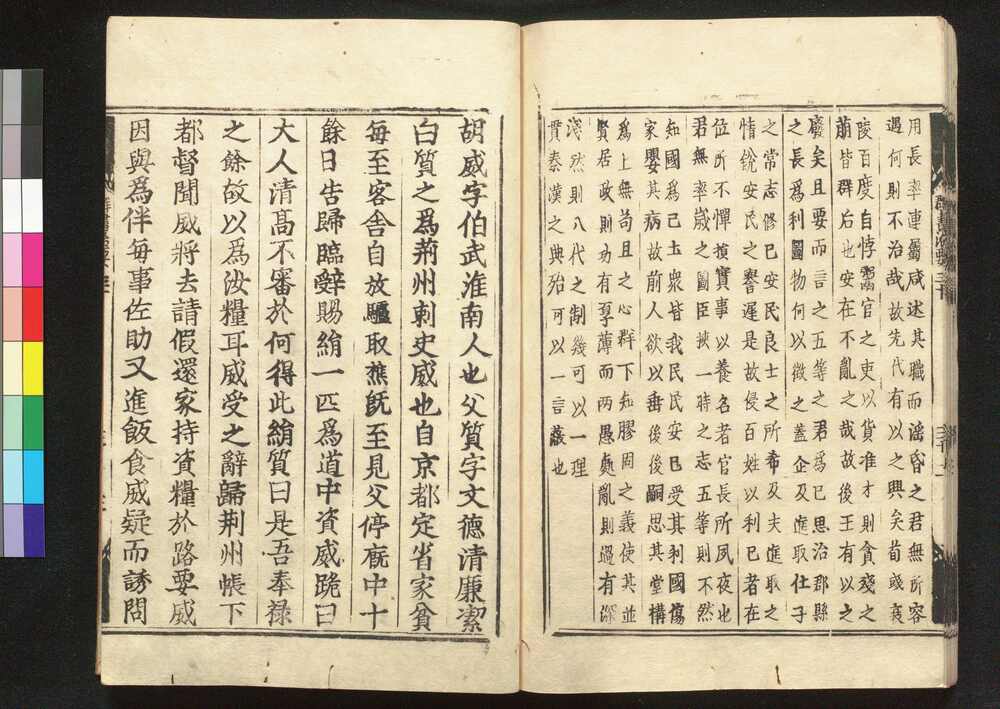 群書治要三十
用長率連屬咸述其職而滛昏之君無所容
過何則不治哉故先代有以之興矣苟或衰
陵百度自悖鬻官之吏以貨准才則貪殘之
萌皆群后也安在不亂之哉故後王有以之
廢矣且要而言之五等之君爲已思治郡縣
之長爲利圖物何以徵之蓋企及進取仕子
之常志修已安民良士之所希及夫進取之
情銳安民之譽遲是故侵百姓以利已者在
位所不憚損實事以養名者官長所夙夜也
君無卒歲之圖臣挾一時之志五等則不然
知國爲已土衆皆我民民安已受其利國傷
家嬰其病故前人欲以垂後後嗣思其堂構
爲上無苟且之心群下知膠固之義使其並
賢居政則功有厚薄而两愚處亂則過有深
淺然則八代之制幾可以一理
貫秦漢之典殆可以一言蔽也
胡威字伯武淮南人也父質字文德清廉潔
白質之爲荆州刺史威也自京都定省家貧
每至客舍自放驢取樵旣至見父停廐中十
餘日告歸臨辭賜絹一匹爲道中資威跪曰
大人清髙不審於何得此絹質曰是吾奉禄
之餘故以爲汝糧耳威受之辭歸荆州帳下
都督聞威將去請假還家持資糧於路要威
因與爲伴每事佐助又進飯食威疑而誘問